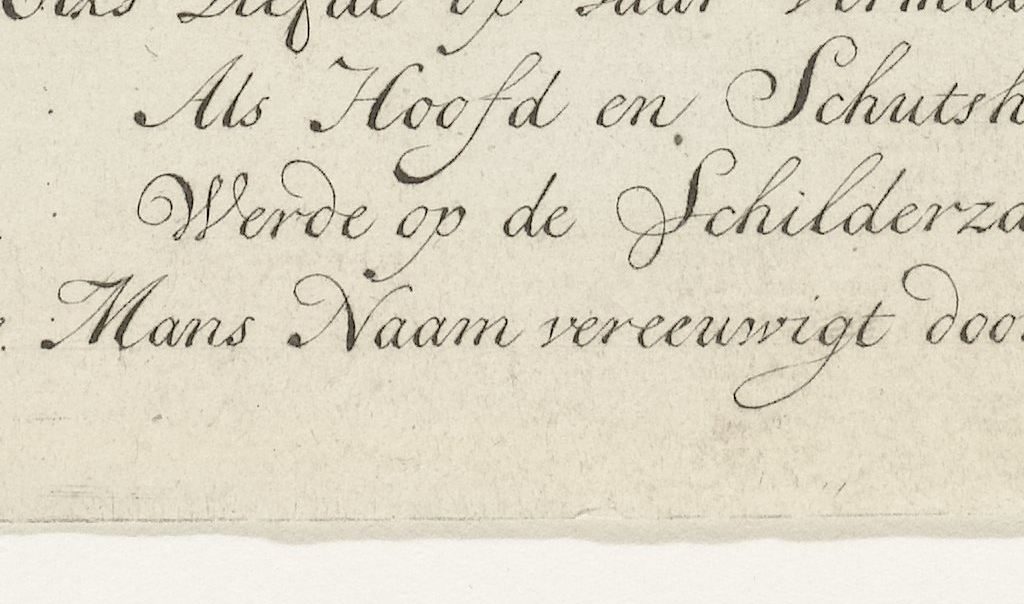 Liefde op
Als Hoofd en Schutsh
Werde op de Schilderza
Mans Naam vereeuwigt doo